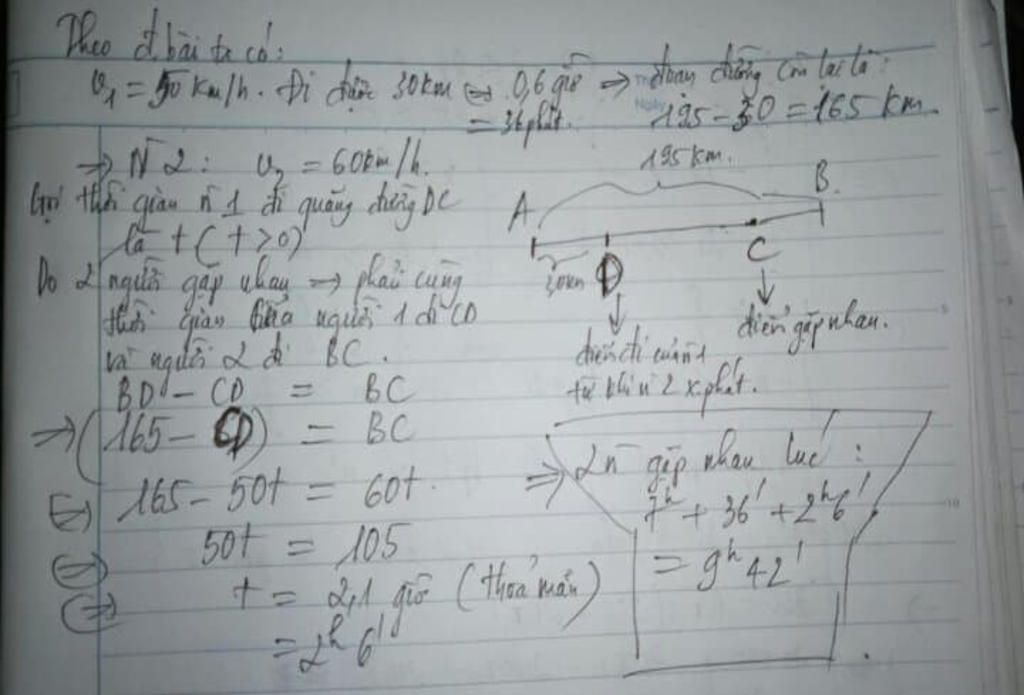 Theo đ bài ta có:
v₁ = 50 km/h. Đi được 30km ⇒ 0,6 giờ ⇒ đoạn đường còn lại là:
= 36 phút. 195 - 30 = 165 km.
⇒ N 2: v₂ = 60km/h.
Gọi thời gian n 1 đi quãng đường DC
là t (t > 0)
Do 2 người gặp nhau → phải cùng
thời gian giữa người 1 đi CD
và người 2 đi BC.
BD - CD = BC
⇒ (165 - CD) = BC
⇔ 165 - 50t = 60t.
⇔ 50t = 105
⇔ t = 2,1 giờ (thoả mãn)
= 2ʰ 6'
195 km.
A B.
30km D C
điểm gặp nhau.
điểm đi của n 1
từ khi n 2 x.phát.
⇒ 2n gặp nhau lúc:
7ʰ + 36' + 2ʰ6'
= 9ʰ 42'